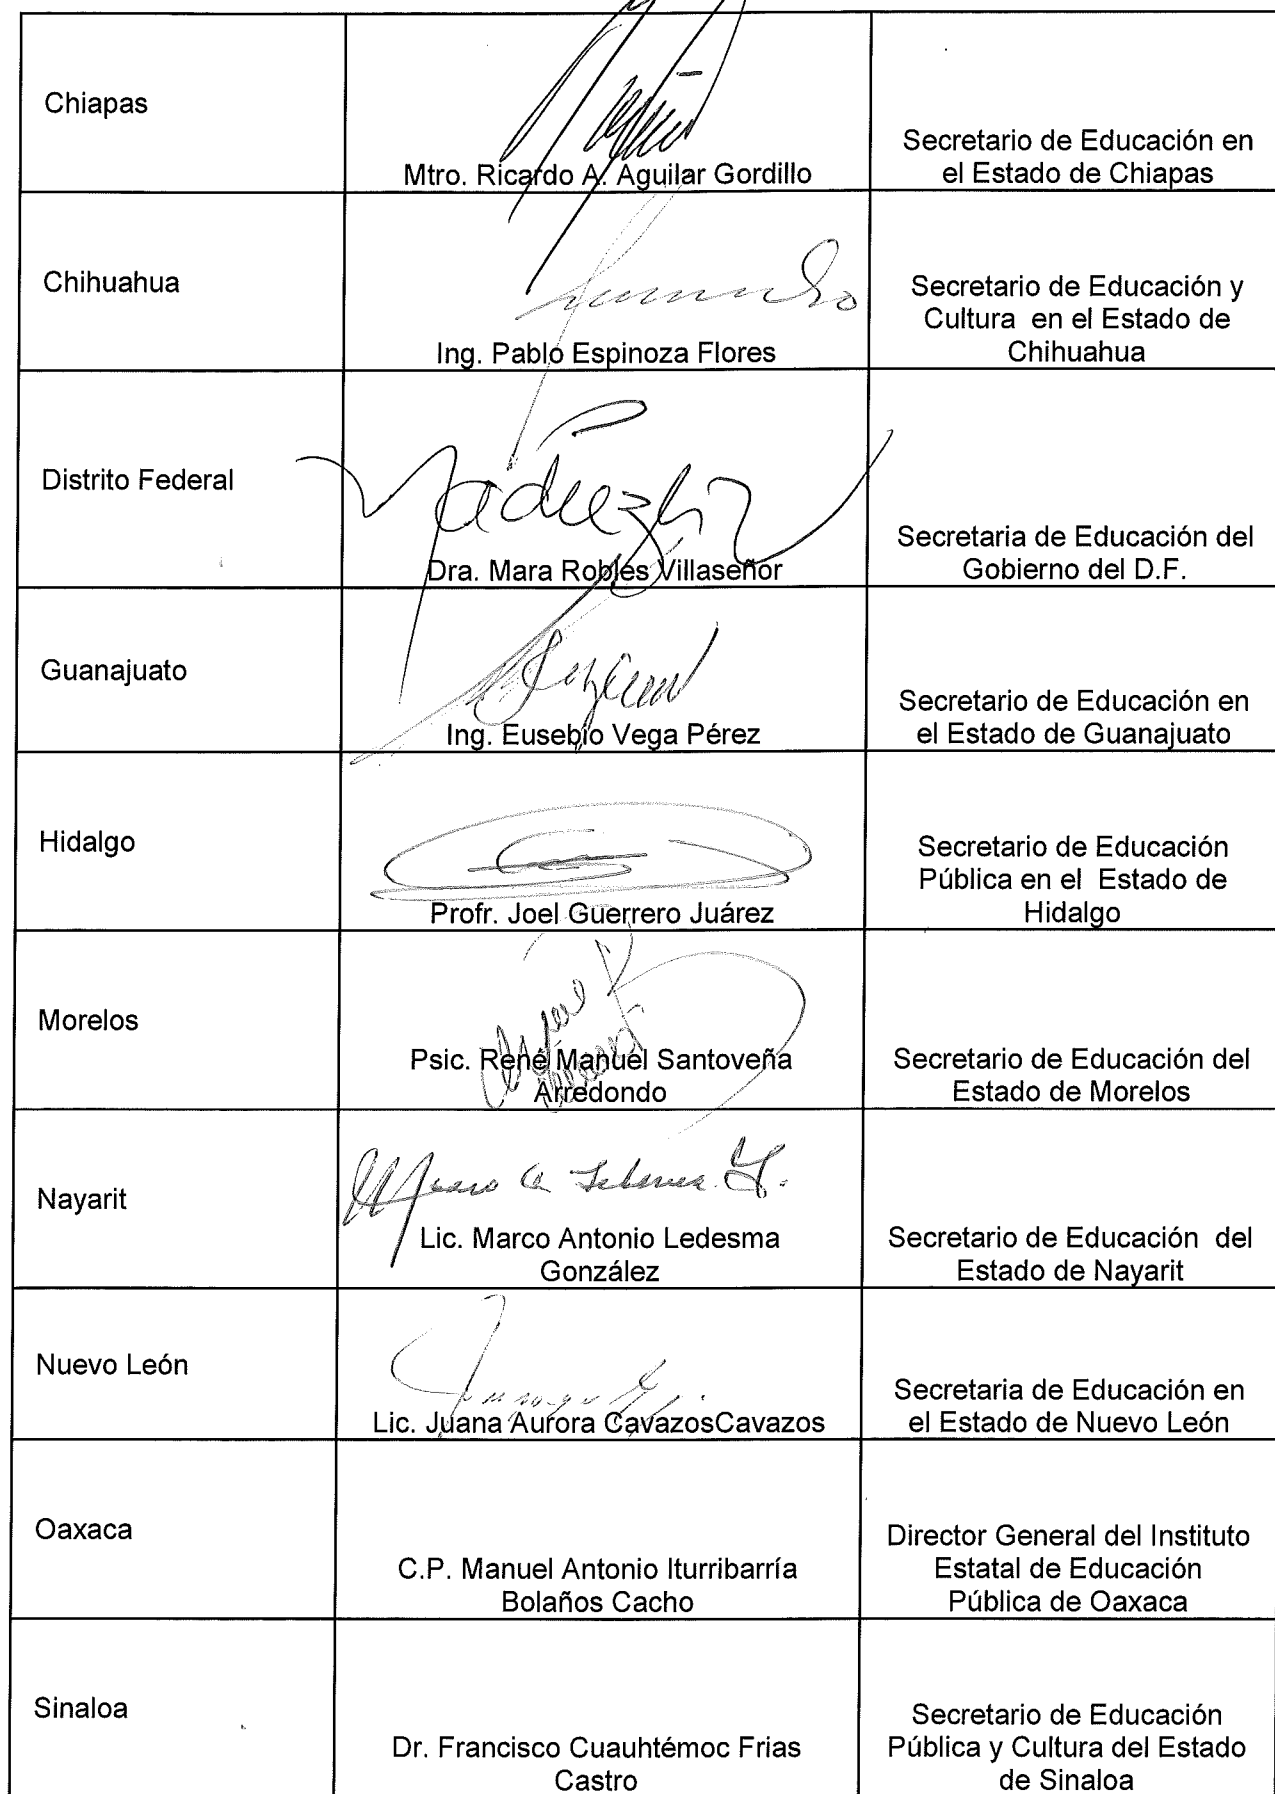 Chiapas
Mtro. Ricardo A. Aguilar Gordillo
Secretario de Educación en
el Estado de Chiapas
Chihuahua
Ing. Pablo Espinoza Flores
Secretario de Educación y
Cultura en el Estado de
Chihuahua
Distrito Federal
Dra. Mara Robles Villaseñor
Secretaria de Educación del
Gobierno del D.F.
Guanajuato
Ing. Eusebio Vega Pérez
Secretario de Educación en
el Estado de Guanajuato
Hidalgo
Profr. Joel Guerrero Juárez
Secretario de Educación
Pública en el Estado de
Hidalgo
Morelos
Psic. René Manuel Santoveña
Arredondo
Secretario de Educación del
Estado de Morelos
Nayarit
Lic. Marco Antonio Ledesma
González
Secretario de Educación del
Estado de Nayarit
Nuevo León
Lic. Juana Aurora CavazosCavazos
Secretaria de Educación en
el Estado de Nuevo León
Oaxaca
C.P. Manuel Antonio Iturribarría
Bolaños Cacho
Director General del Instituto
Estatal de Educación
Pública de Oaxaca
Sinaloa
Dr. Francisco Cuauhtémoc Frias
Castro
Secretario de Educación
Pública y Cultura del Estado
de Sinaloa